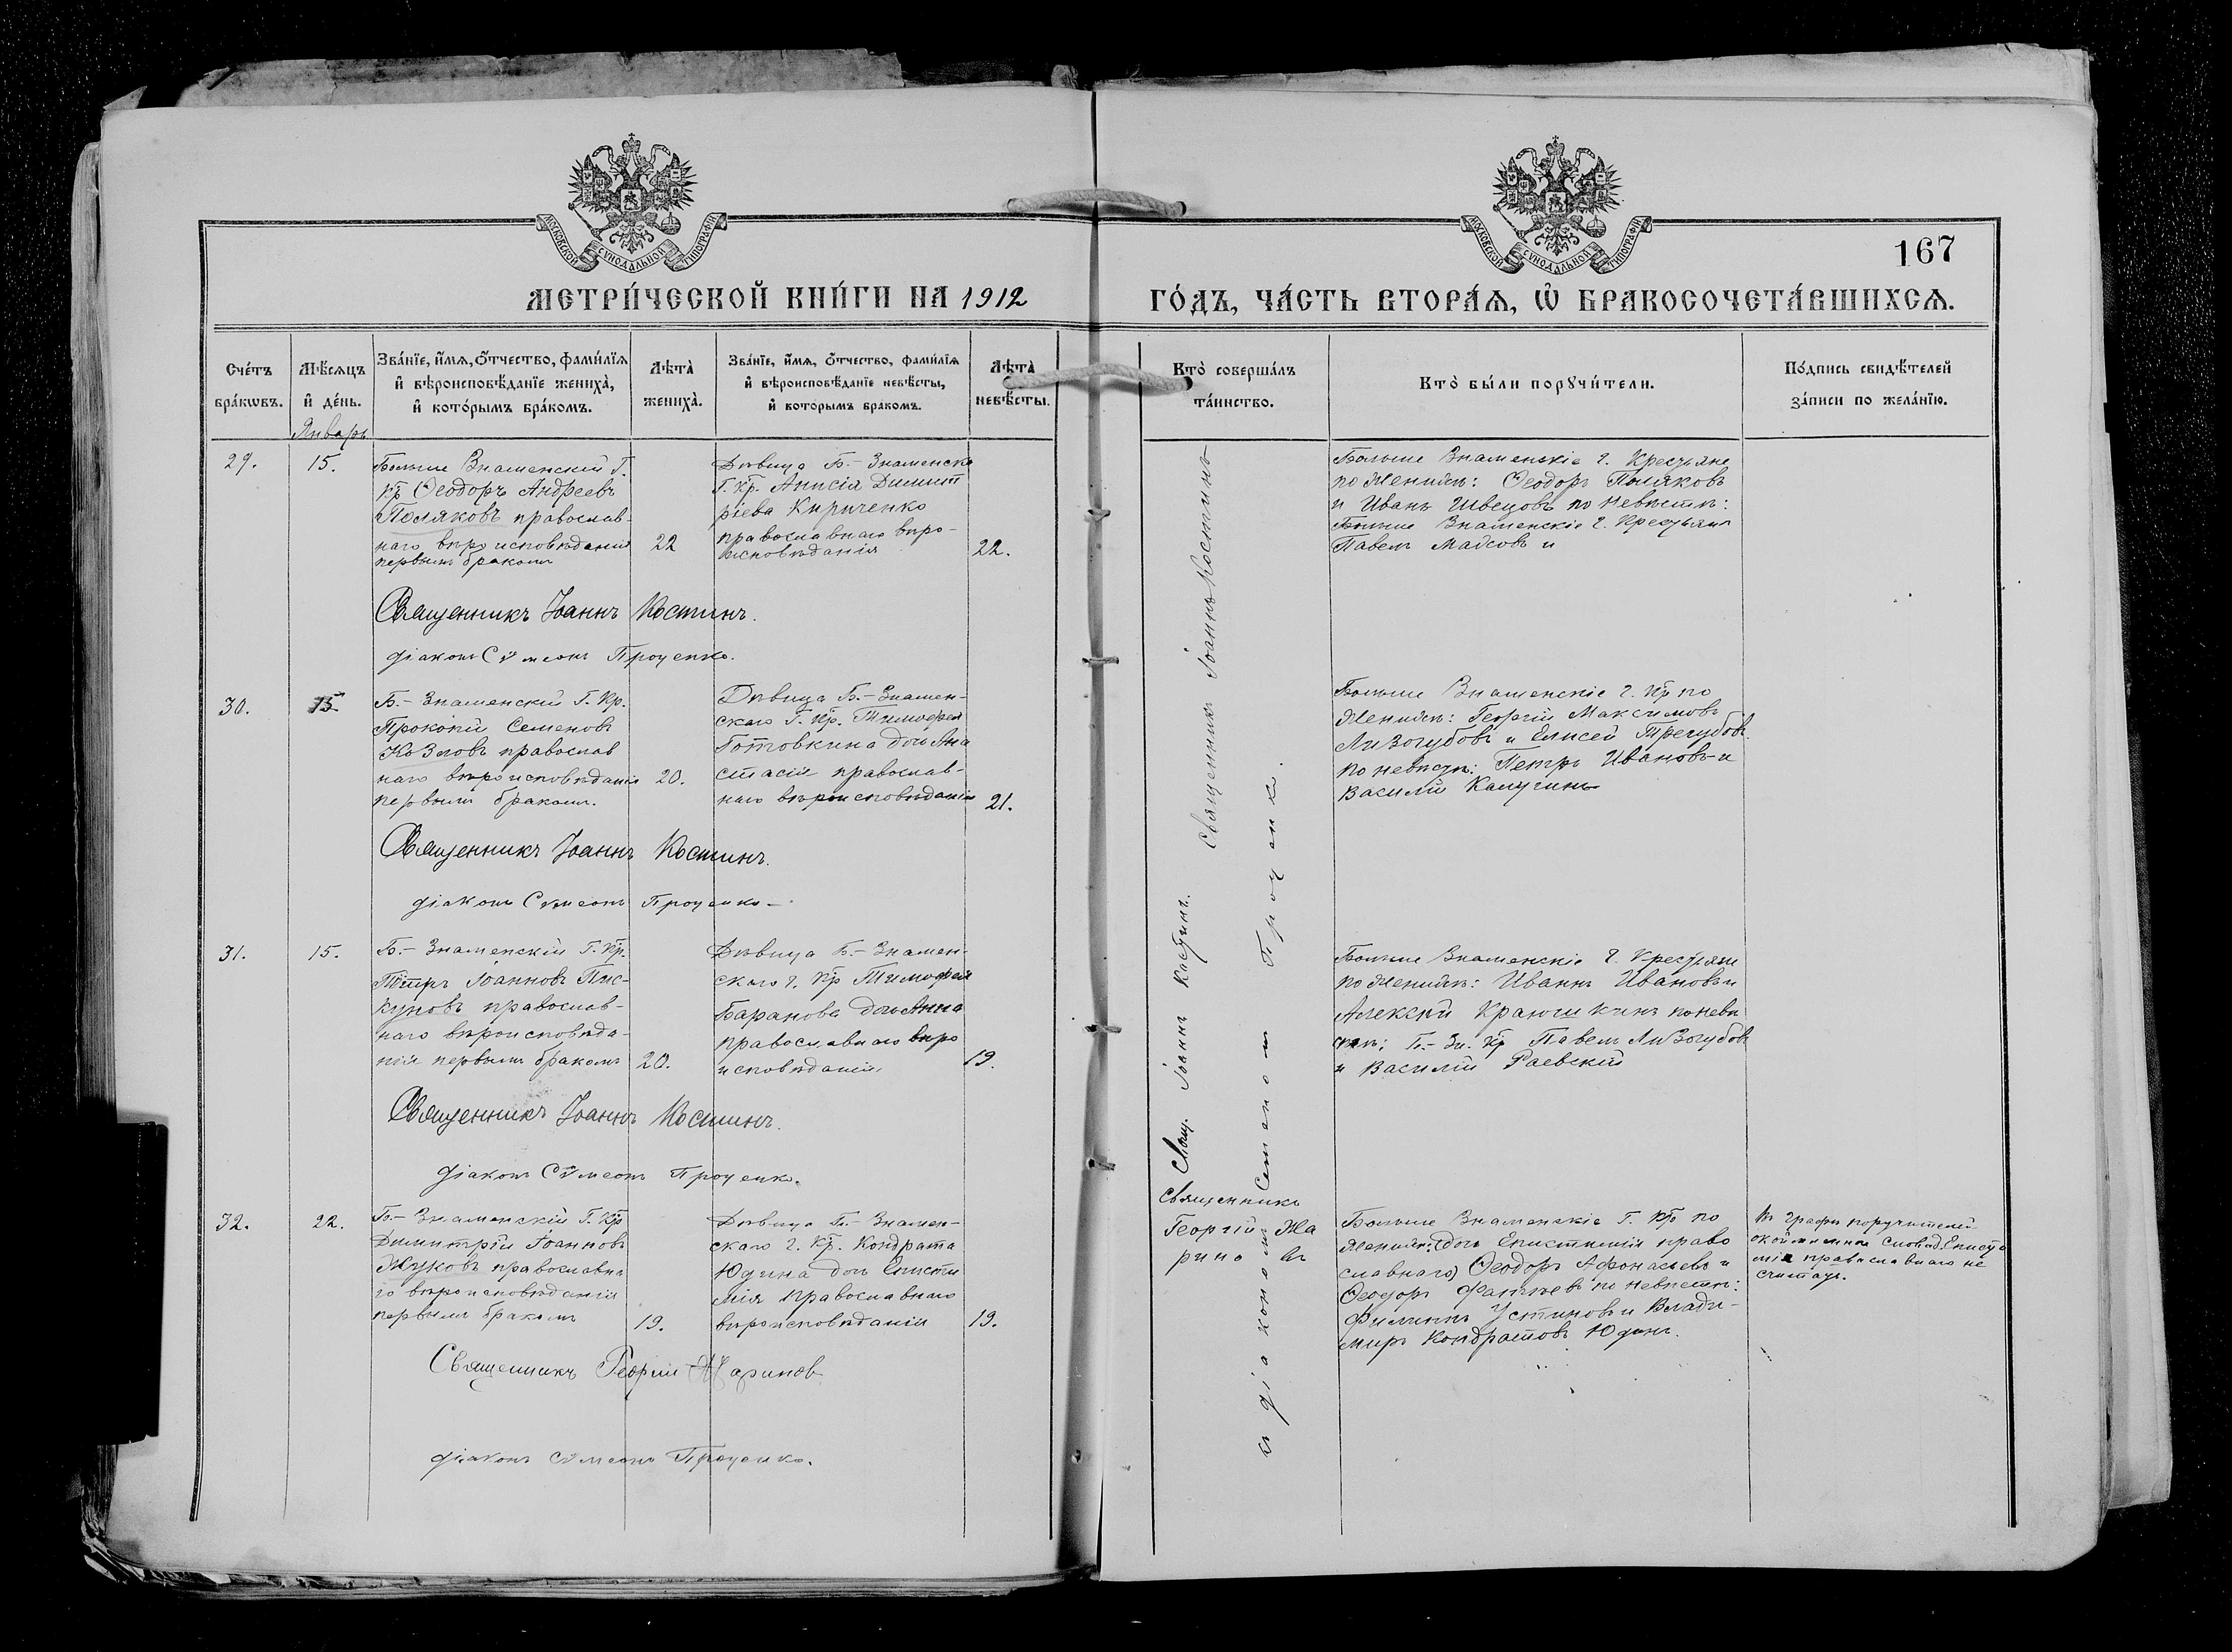 МОСКОВСКОЙ СѴНОДАЛЬНОЙ ТИПОГРАФІИ
МОСКОВСКОЙ СѴНОДАЛЬНОЙ ТИПОГРАФІИ
167
МЕТРИ́ЧЕСКОЙ КНИ́ГИ НА 1912
ГО́ДЪ, ЧА́СТЬ ВТОРА́Ѧ, Ѡ҆ БРАКОСОЧЕТА́ВШИХСѦ.
Сче́тъ
бра́кѡвъ.
Мѣ́сѧцъ
и҆ де́нь.
Зва́нїе, и҆́мѧ, ѻ҆́тчество, фами́лїѧ
и҆ вѣроисповѣ́данїе жениха̀,
и҆ кото́рымъ бра́комъ.
Лѣта̀
жениха̀.
Зва́нїе, и҆́мѧ, ѻ҆́тчество, фами́лїѧ
и҆ вѣроисповѣ́данїе невѣ́сты,
и҆ кото́рымъ бракомъ.
Лѣта̀
невѣ́сты.
Кто̀ соверша́лъ
та́инство.
Кто̀ бы́ли порꙋчи́тели.
По́дпись свидѣ́телей
за́писи по жела́нїю.
Январь
29.
15.
Больше Знаменскій Г.
кр Ѳеодоръ Андреевъ
Поляковъ православ-
наго вѣроисповѣданія
первымъ бракомъ
22
Дѣвица Б.- Знаменска
Г. Кр. Анисія Димит
ріева Кириченко
православнаго вѣро-
исповѣданія
22.
Больше Знаменскіе г. Крестьяне
по женихѣ: Ѳеодоръ Поляковъ
и Иванъ Швецовъ по невѣстѣ:
Больше Знаменскіе г. Крестьяне
Павелъ и
Священникъ Іоаннъ Костинъ.
діаконъ Сѵмеонъ Проценко.
30.
15
Б.- Знаменскій Г. Кр.
Прокопій Семеновъ
Козловъ православ
наго вѣроисповѣданія
первымъ бракомъ.
20.
Дѣвица Б.- Знамен-
скаго Г. Кр. Тимофея
Готовкина дочь Ана
стасія православ-
наго вѣроисповѣданія
21.
Больше Знаменскіе г. кр по
женихѣ: Георгій Максимовъ
Лизогубовъ и Елисей Трегубовъ
по невѣстѣ: Петръ Ивановъ и
Василій Калугинъ
Священникъ Іоаннъ Костинъ.
діаконъ Сѵмеонъ Проценко
31.
15.
Б.- Знаменскій Г. Кр.
Петръ Іоанновъ Пис-
куновъ православ-
наго вѣроисповѣда-
нія первымъ бракомъ
20.
Дѣвица Б.- Знамен-
скаго г. Кр Тимофея
Баранова дочь Анна
православнаго вѣро
исповѣданія.
19.
Больше Знаменскіе г. Крестьяне
по женихѣ: Иванъ Ивановъ и
Алексѣй по невѣ
стѣ: Б.- Зн. Кр Павелъ Лизогубовъ
и Василій Раевскій
Священникъ Іоаннъ Костинъ.
діаконъ Сѵмеонъ Проценко.
32.
22.
Б.- Знаменскій Г. Кр
Димитрій Іоанновъ
Жуковъ православна
го вѣроисповѣданія
первымъ бракомъ
19.
Дѣвица Б.- Знамен-
скаго г. Кр. Кондрата
Юдина дочь Еписти
мія православнаго
вѣроисповѣданія
19.
Священникъ Іоаннъ Костинъ
Свящ. Іоаннъ Костинъ.
Священникъ
Георгій Жа
рино въ
съ діакономъ Семеномъ Проценко.
Больше Знаменскіе Г. Кр по
женихѣ: (дочь Епистимія право
славнаго) Ѳеодоръ Афонасьевъ и
Ѳеодоръ по невѣстѣ:
Филиппъ Устиновъ и Влади-
миръ Кондратовъ Юдинъ.
Въ графѣ поручителей
слова д. Еписти
мія православнаго не
считать.
Священникъ Георгій Жариновъ
діаконъ Сѵмеонъ Проценко.